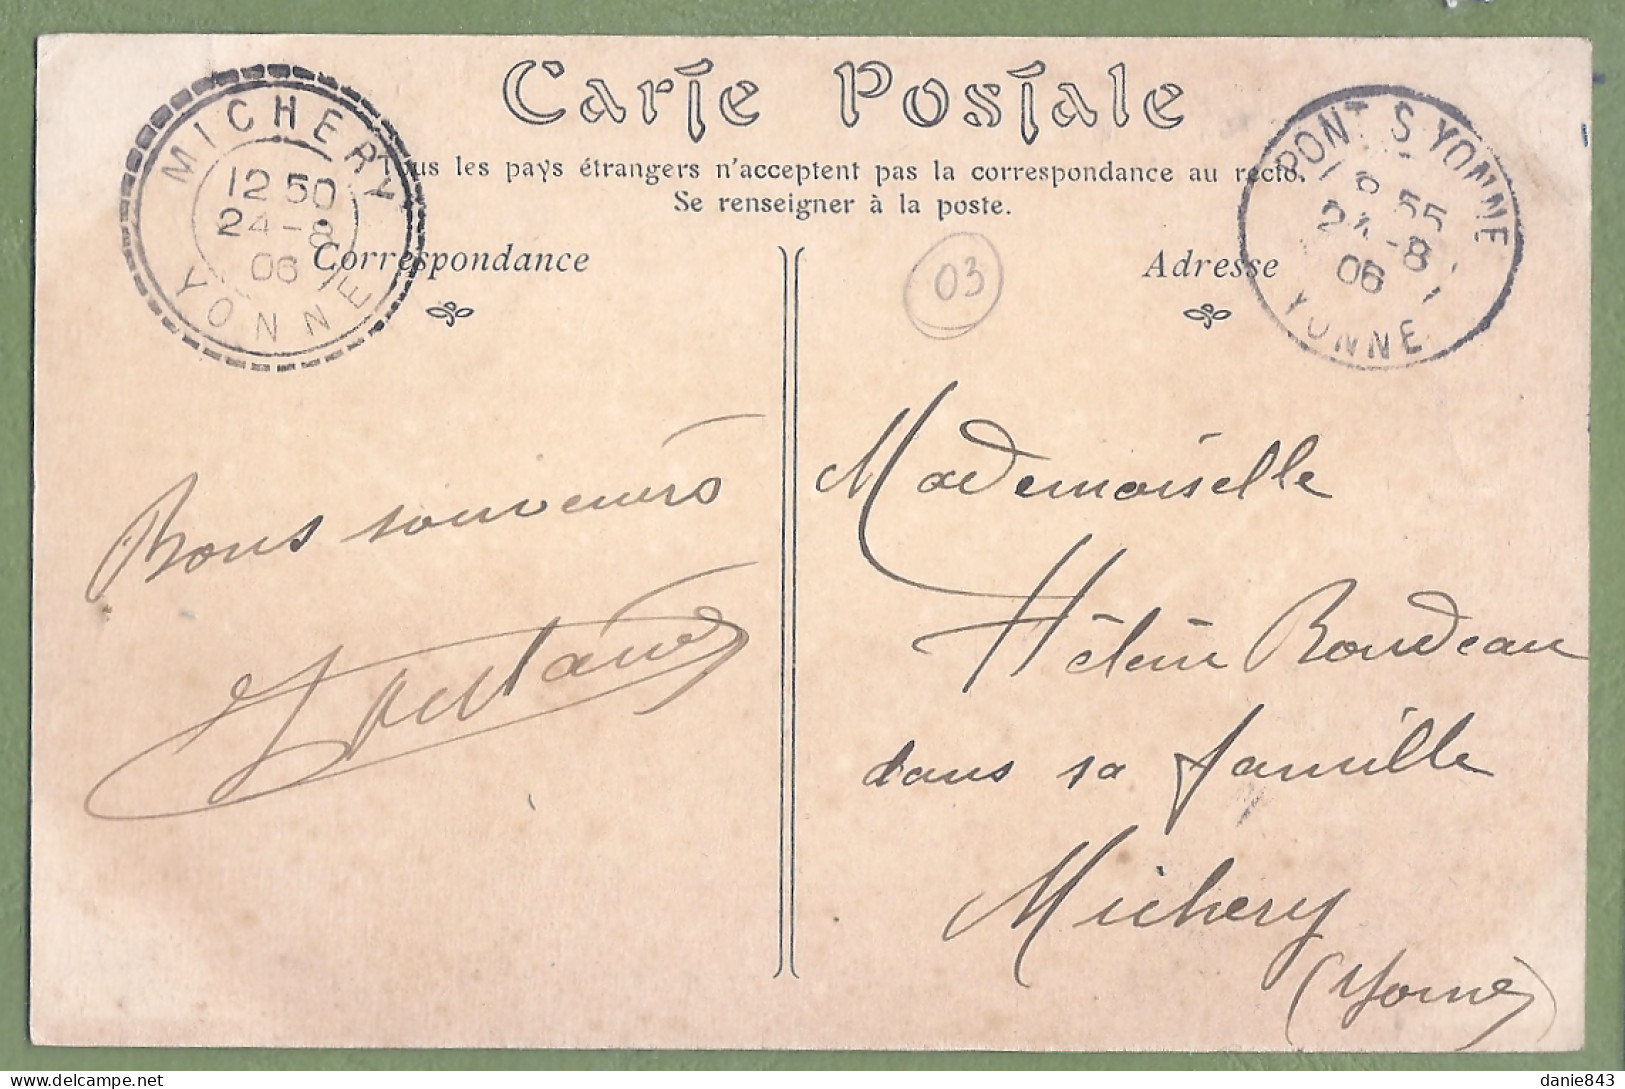 Carte Postale
ous les pays étrangers n'acceptent pas la correspondance au recto.
Se renseigner à la poste.
MICHERY
12 50
24-8
06
YONNE
Correspondance
03
Adresse
PONT S YONNE
55
24-8
06
YONNE
Bons souvenirs
Mademoiselle
Hélène Rondeau
dans sa famille
Michery
(Yonne)
danie843